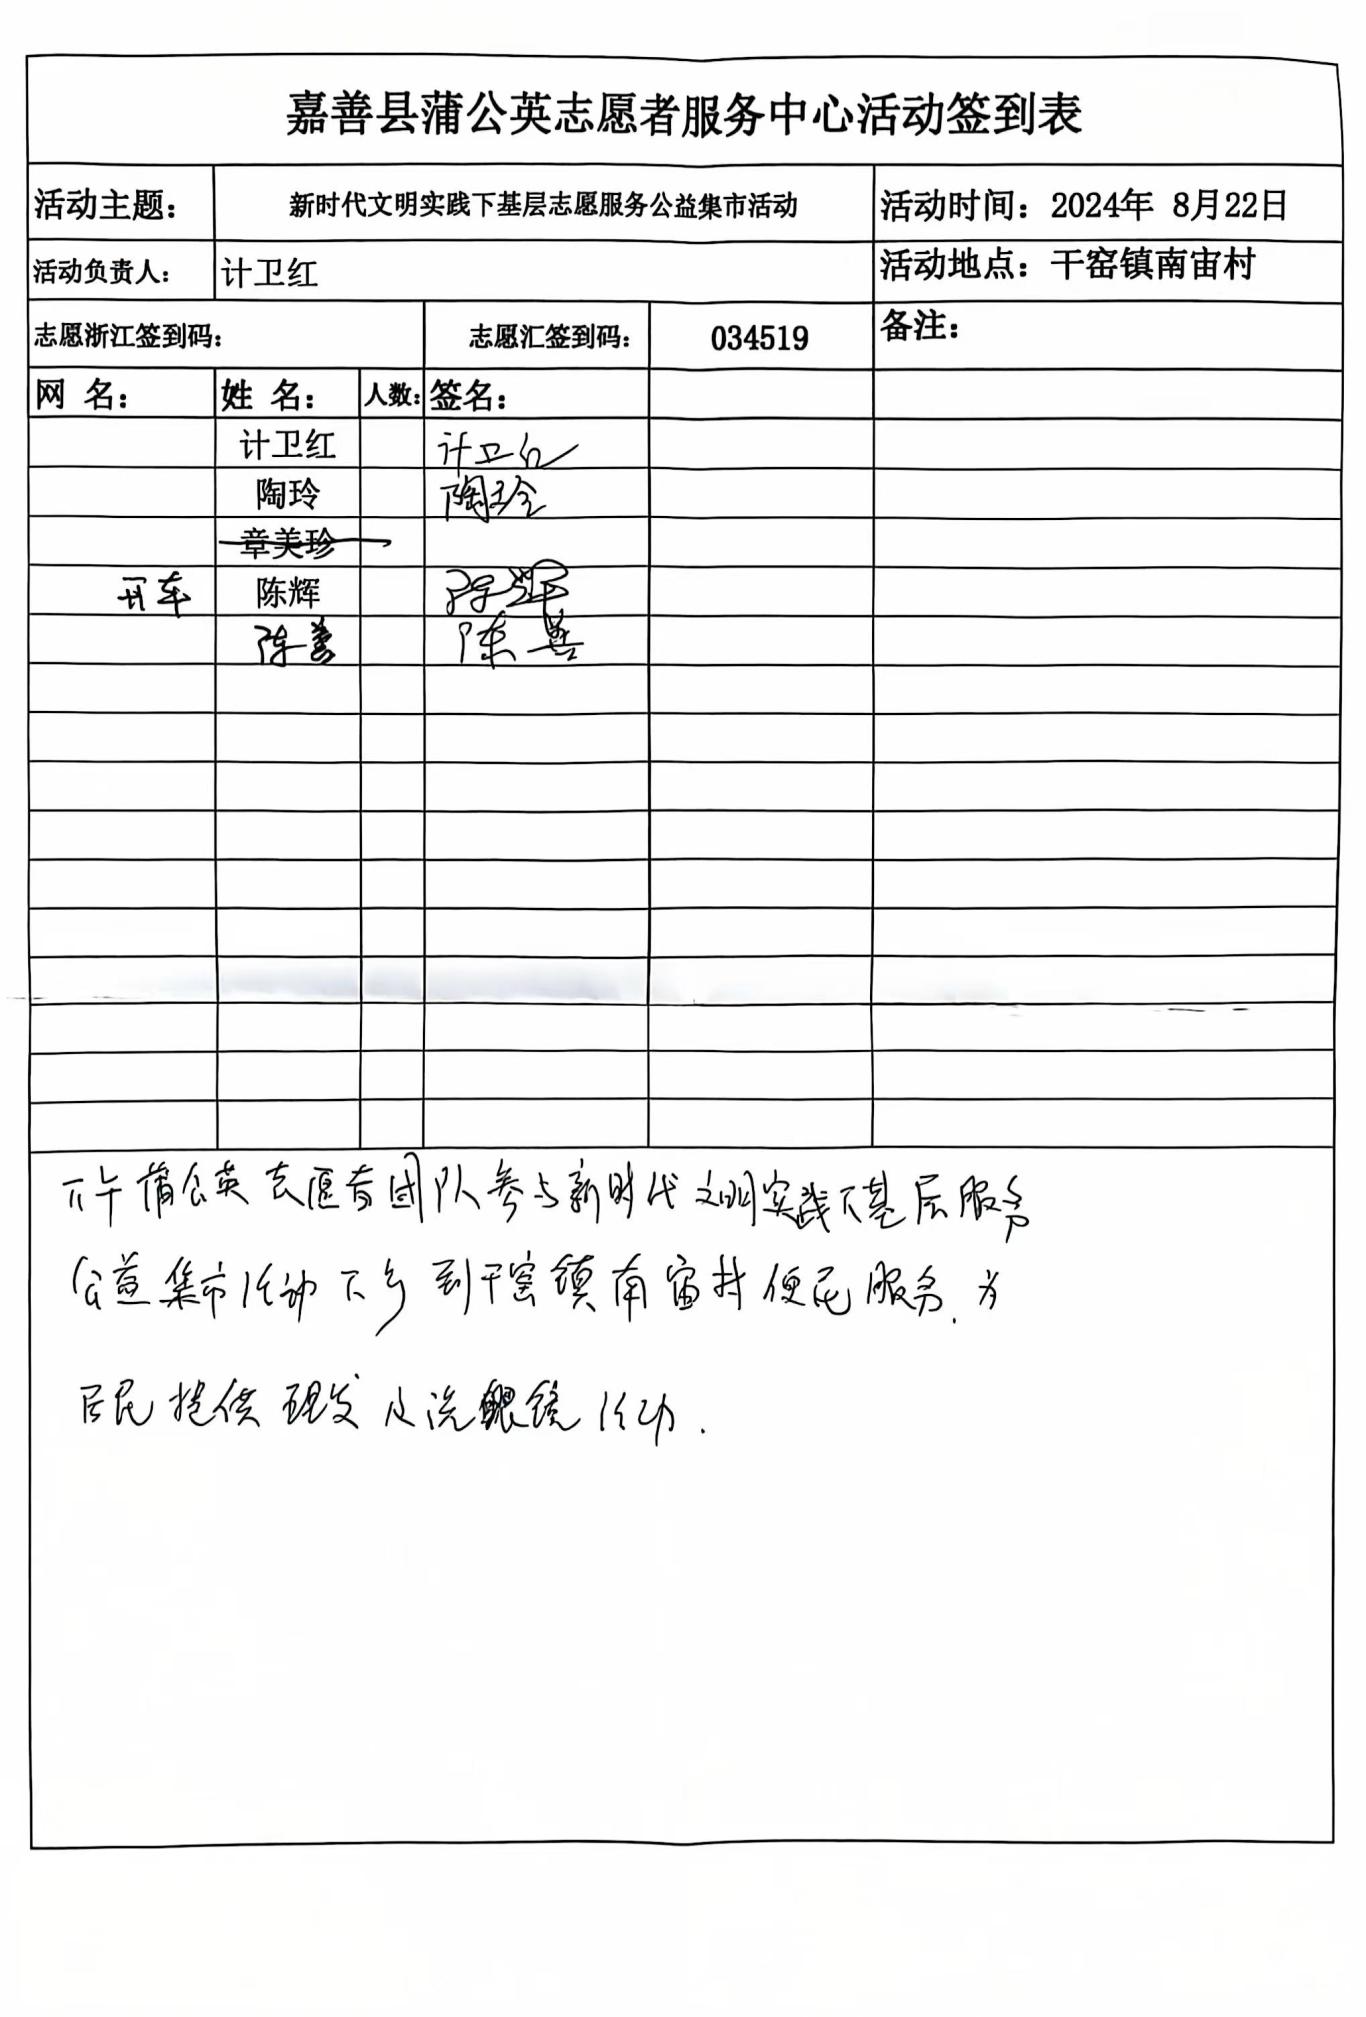 嘉善县蒲公英志愿者服务中心活动签到表
活动主题： 新时代文明实践下基层志愿服务公益集市活动 活动时间：2024年 8月22日
活动负责人： 计卫红 活动地点：干窑镇南宙村
志愿浙江签到码： 志愿汇签到码： 034519 备注：
网 名： 姓 名： 人数： 签名：
计卫红 计卫红
陶玲 陶玲
章美珍
开车 陈辉 陈辉
陈善 陈善
下午蒲公英志愿者团队参与新时代文明实践下基层服务
公益集市活动下乡到干窑镇南宙村便民服务.为
居民提供理发及洗眼镜活动.